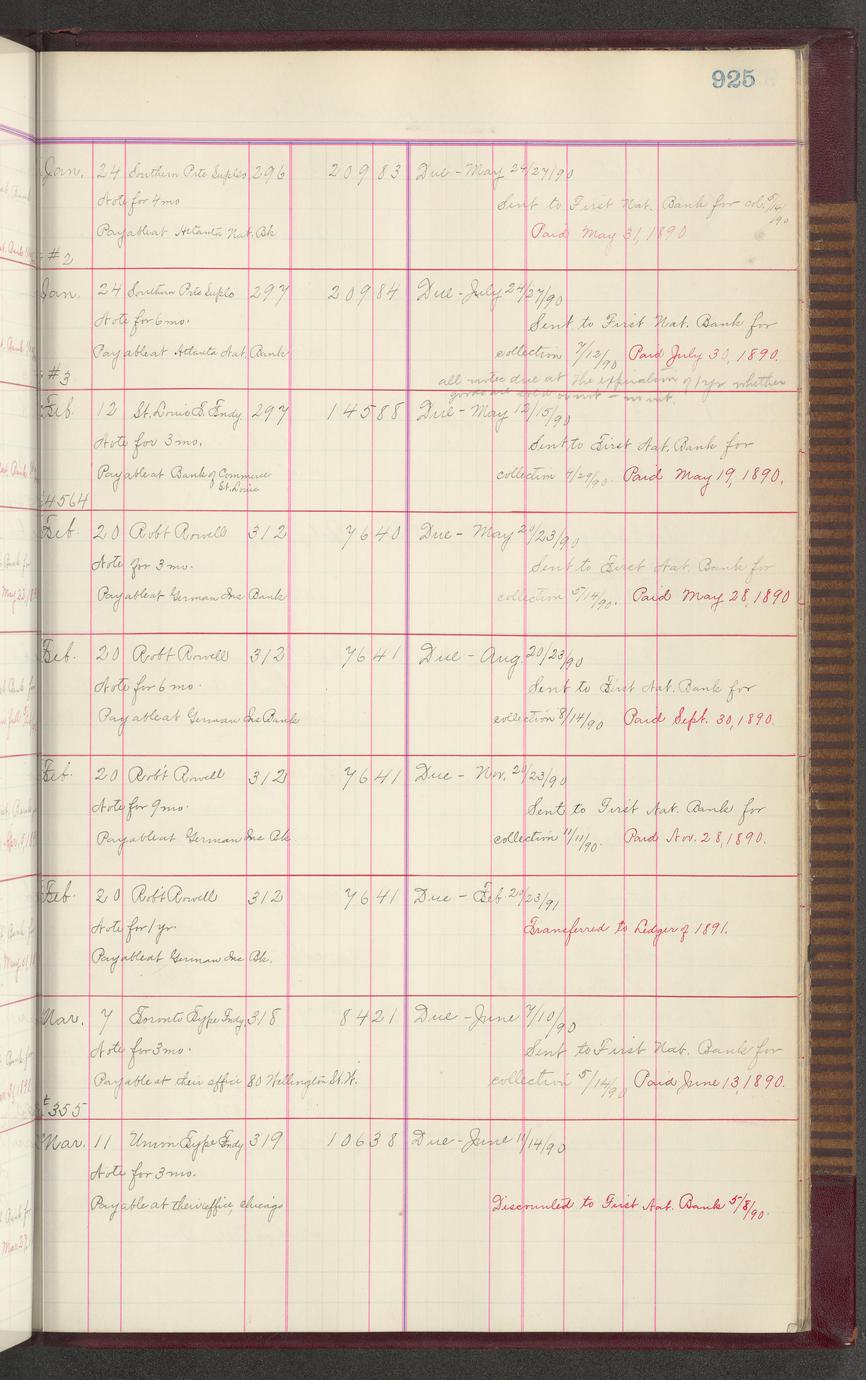 925
Jan. 24 Southern Prtg Suplo 296 209 83 Due - May 24/27/90
Note for 4 mo Sent to First Nat. Bank for col. 5/14/90
Payable at Atlanta Nat. Bk Paid May 31, 1890
#2
Jan. 24 Southern Prtg Suplo 297 209 84 Due - July 24/27/90
Note for 6 mo. Sent to First Nat. Bank for
Payable at Atlanta Nat. Bank collection 7/12/90 Paid July 30, 1890.
#3 all notes due at the expiration of 1 yr whether
goods are sold or not - no int.
Feb. 12 St. Louis E. Fndy. 297 145 88 Due - May 12/15/90
Note for 3 mo. Sent to First Nat. Bank for
Payable at Bank of Commerce St. Louis collection 4/29/90. Paid May 19, 1890.
4564
Feb. 20 Robt Rowell 312 76 40 Due - May 20/23/90
Note for 3 mo. Sent to First Nat. Bank for
Payable at German Ins Bank collection 5/14/90. Paid May 28, 1890
Feb. 20 Robt Rowell 312 76 41 Due - Aug. 20/23/90
Note for 6 mo. Sent to First Nat. Bank for
Payable at German Ins Bank collection 8/14/90 Paid Sept. 30, 1890.
Feb. 20 Robt Rowell 312 76 41 Due - Nov. 20/23/90
Note for 9 mo. Sent to First Nat. Bank for
Payable at German Ins Bk. collection 11/11/90. Paid Nov. 28, 1890.
Feb. 20 Robt Rowell 312 76 41 Due - Feb. 20/23/91
Note for 1 yr. Transferred to Ledger of 1891.
Payable at German Ins Bk.
Mar. 7 Toronto Type Fndy. 318 84 21 Due - June 7/10/90
Note for 3 mo. Sent to First Nat. Bank for
Payable at their office 80 Wellington St. W. collection 5/14/90 Paid June 13, 1890.
#355
Mar. 11 Union Type Fndy 319 106 38 Due - June 11/14/90
Note for 3 mo.
Payable at their office, Chicago Discounted to First Nat. Bank 5/8/90.